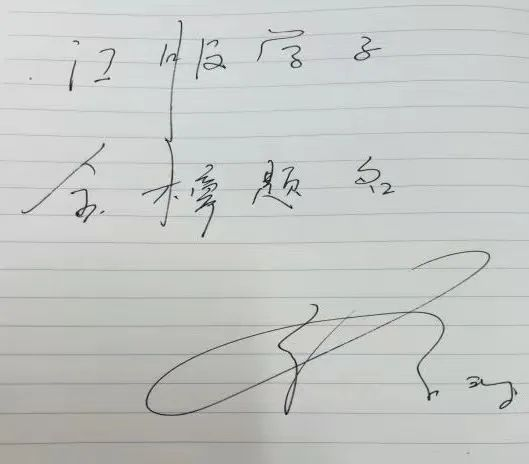 江服学子
金榜题名